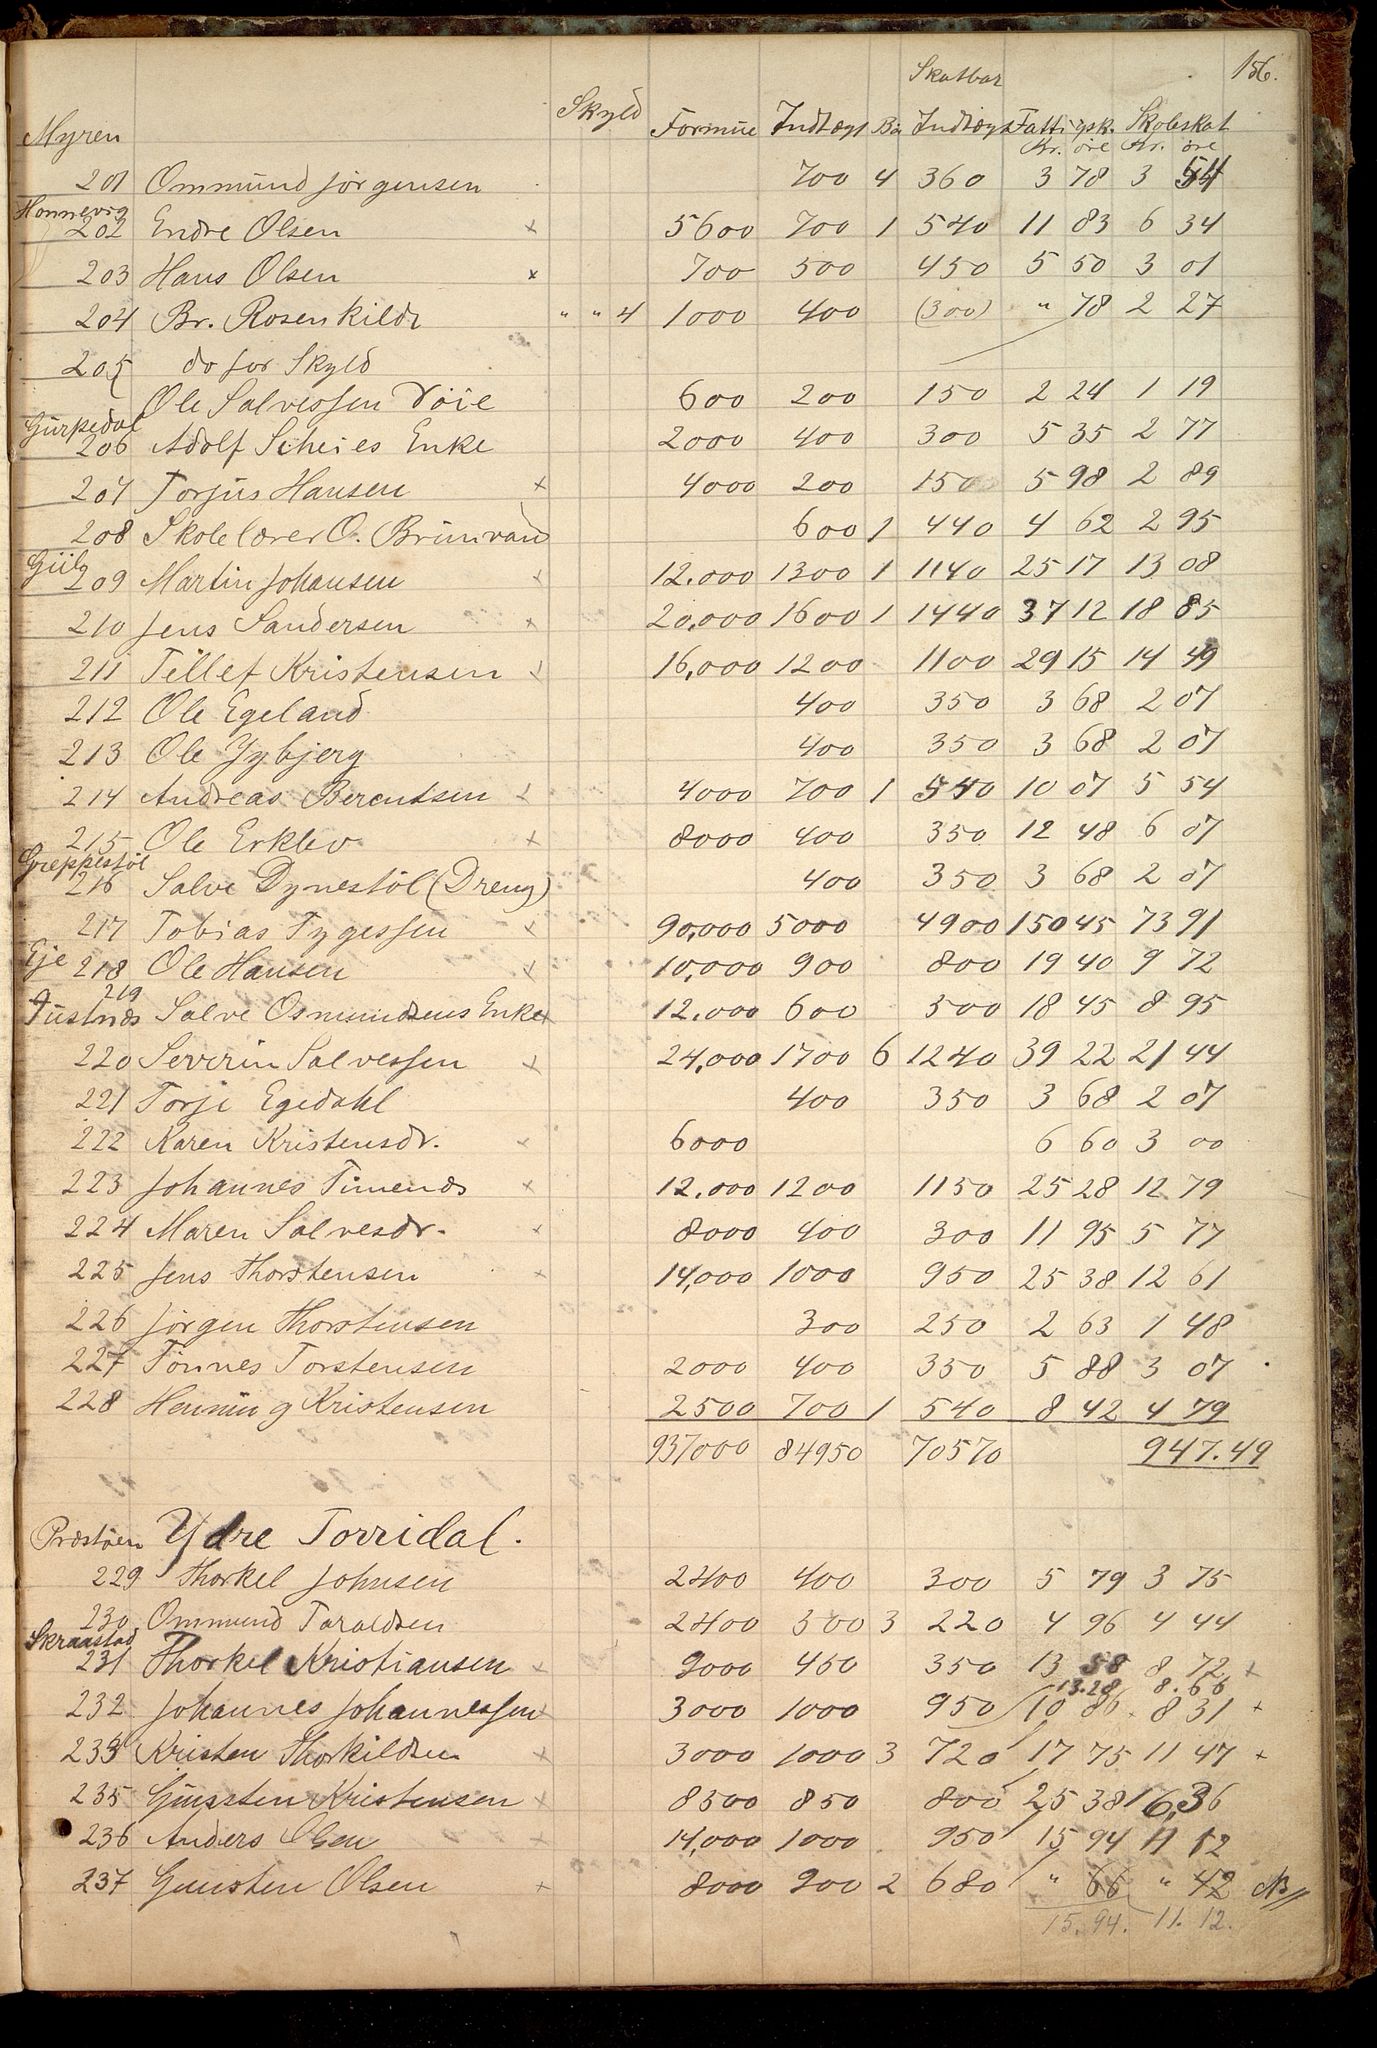 156.
Skatbar
Myren Skyld Formue Indtægt Bø Indtægt Fattigsk. Skoleskat
Kr. öre Kr. öre
201 Ommund Jörgensen 700 4 360 3 78 3 54
Honnevig
202 Endre Olsen × 5600 700 1 540 11 83 6 34
203 Hans Olsen × 700 500 450 5 50 3 01
204 Br. Rosenkilde " " 4 1000 400 (300) " 78 2 27
205 do for Skyld
Ole Salvessen Vöie 600 200 150 2 24 1 19
Gurpedal
206 Adolf Scheies Enke 2000 400 300 5 35 2 77
207 Torjus Hansen × 4000 200 150 5 98 2 89
208 Skolelærer O. Brunvand 600 1 440 4 62 2 95
Güls
209 Martin Johansen × 12.000 1300 1 1140 25 17 13 08
210 Jens Sandersen × 20,000 1600 1 1440 37 12 18 85
211 Tellef Kristensen × 16,000 1200 1100 29 15 14 49
212 Ole Egeland 400 350 3 68 2 07
213 Ole Jybjerg 400 350 3 68 2 07
214 Andreas Berentsen × 4000 700 1 540 10 07 5 54
215 Ole Erklev × 8000 400 350 12 48 6 07
Greppestöl
216 Salve Dynestöl (Dreng) 400 350 3 68 2 07
217 Tobias Tygessen × 90,000 5000 4900 150 45 73 91
Eje 218 Ole Hansen × 10,000 900 800 19 40 9 72
219
Justnæs Salve Osmundsens Enke × 12.000 600 500 18 45 8 95
220 Severin Salvessen × 24,000 1700 6 1240 39 22 21 44
221 Torje Egedahl 400 350 3 68 2 07
222 Karen Kristensdr. × 6000 6 60 3 00
223 Johannes Timenes × 12.000 1200 1150 25 28 12 79
224 Maren Salvesdr. × 8000 400 300 11 95 5 77
225 Jens Thorstensen × 14,000 1000 950 25 38 12 61
226 Jörgen Thorstensen 300 250 2 63 1 48
227 Tönnes Torstensen 2000 400 350 5 88 3 07
228 Henning Kristensen 2500 700 1 540 8 42 4 79
937000 84950 70570 947.49
Præstöen Ydre Torridal.
229 Thorkel Johnsen 2400 400 300 5 79 3 75
230 Ommund Taraldsen 2400 300 3 220 4 96 4 44
Skraastad
231 Thorkel Kristiansen × 9000 450 350 13 58 8 72 ×
13.28 8.66
232 Johannes Johannessen × 3000 1000 950 10 86 8 31 ×
233 Kristen Thorkildsen × 3000 1000 3 720 17 75 11 47 ×
235 Gunsten Kristensen × 8500 850 800 25 38 16,36
236 Anders Olsen × 14,000 1000 950 15 94 11 12
237 Gunsten Olsen × 8000 900 2 680 " 66 " 42 NB
15.94. 11.12.